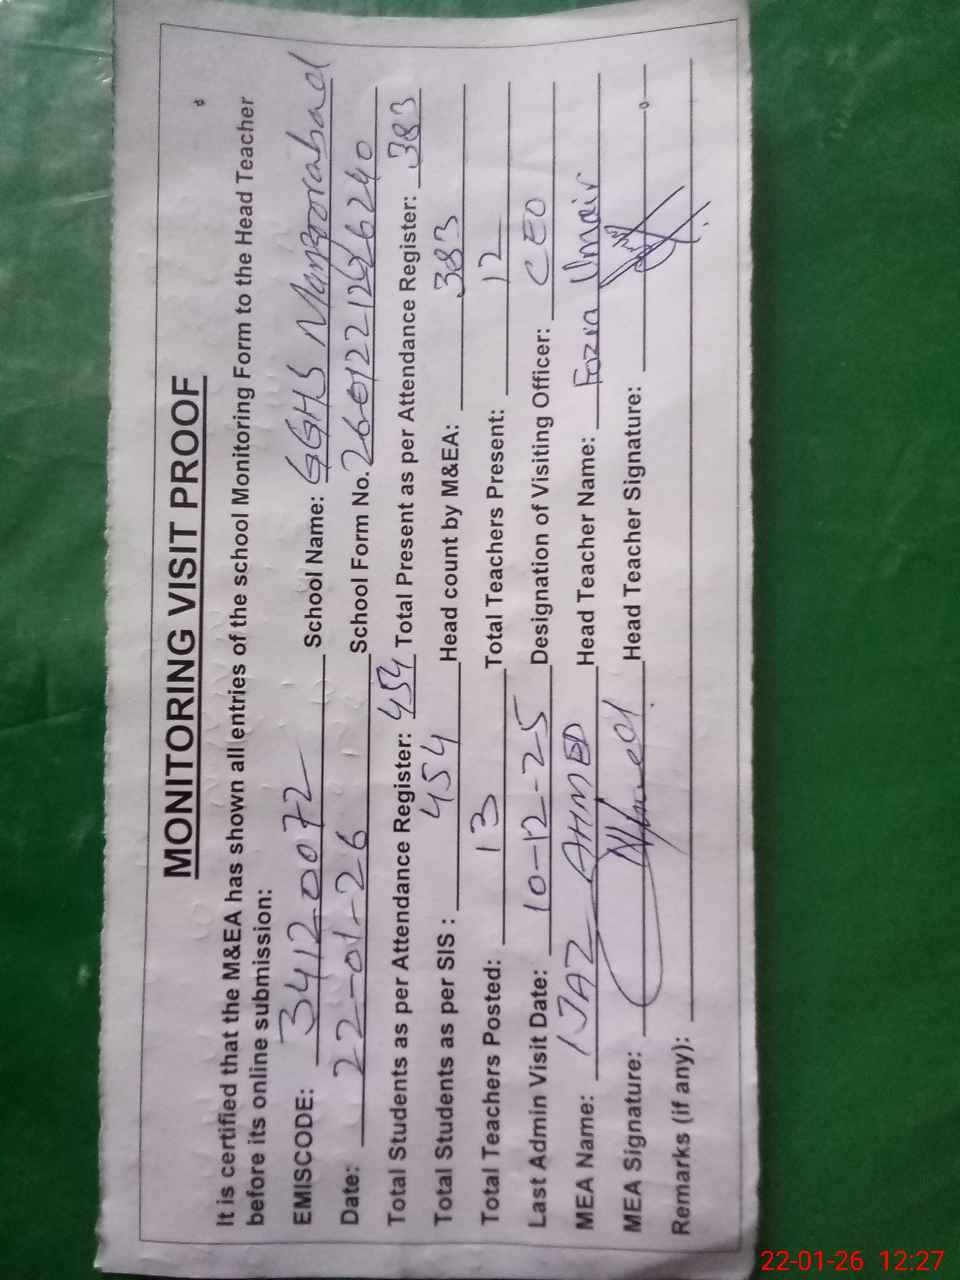 MONITORING VISIT PROOF
It is certified that the M&EA has shown all entries of the school Monitoring Form to the Head Teacher
before its online submission:
EMISCODE: 34120072 School Name: GGHS Manzoorabad
Date: 22-01-26 School Form No.
Total Students as per Attendance Register: 454 Total Present as per Attendance Register: 383
Total Students as per SIS: 454 Head count by M&EA: 383
Total Teachers Posted: 13 Total Teachers Present: 12
Last Admin Visit Date: 10-12-25 Designation of Visiting Officer: CEO
MEA Name: IJAZ AHMED Head Teacher Name: Fozia Umair
MEA Signature: Head Teacher Signature:
Remarks (if any):
22-01-26 12:27